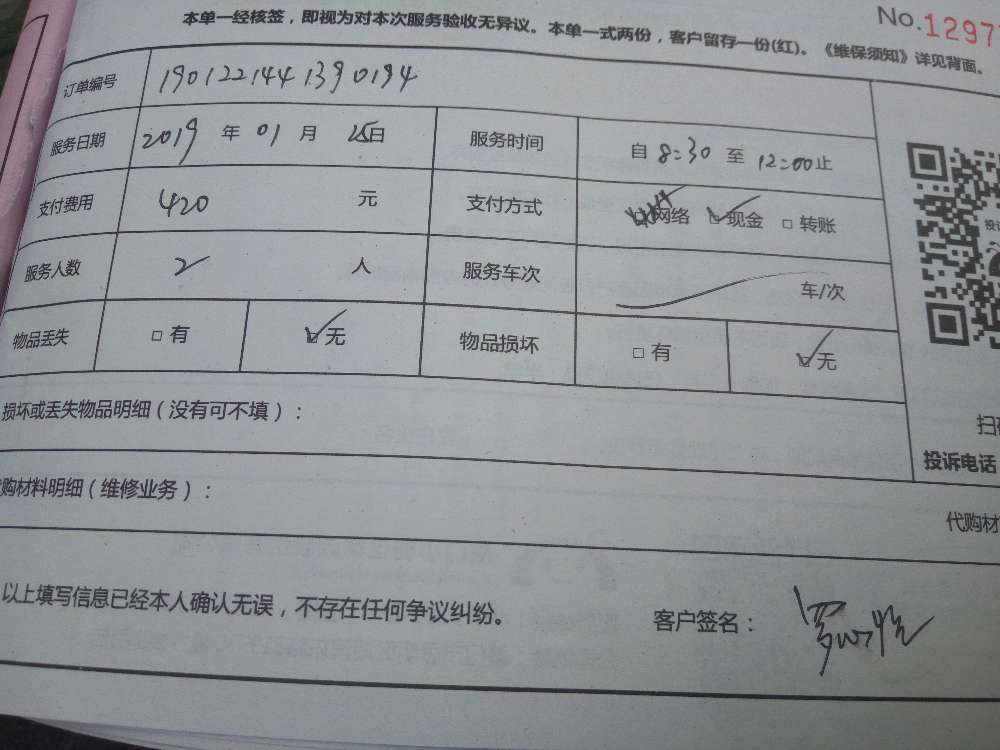 No.1297
本单一经核签，即视为对本次服务验收无异议。本单一式两份，客户留存一份(红)。《维保须知》详见背面。
订单编号 1901221441390194
服务日期 2019 年 01 月 25日 服务时间 自 8:30 至 12:00止
支付费用 420 元 支付方式 网络 ☑现金 □ 转账
服务人数 2 人 服务车次 车/次
物品丢失 □ 有 ☑无 物品损坏 □ 有 ☑无
损坏或丢失物品明细（没有可不填）：
扫
投诉电话
购材料明细（维修业务）：
代购材
以上填写信息已经本人确认无误，不存在任何争议纠纷。 客户签名：